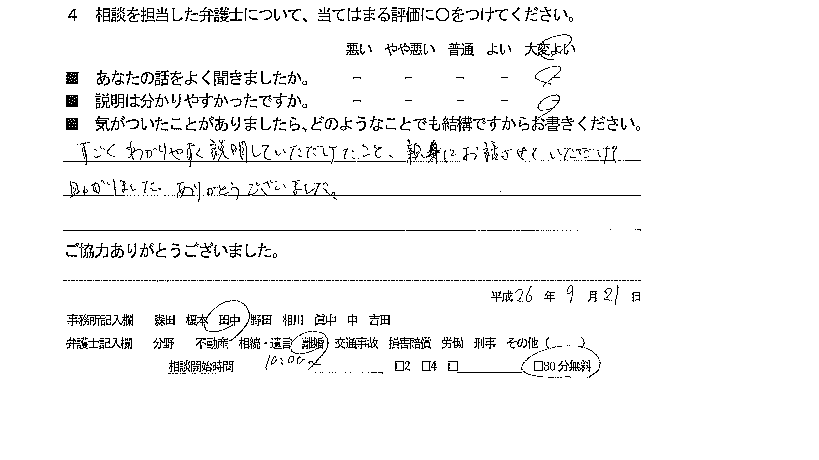 4 相談を担当した弁護士について、当てはまる評価に○をつけてください。
悪い やや悪い 普通 よい 大変よい
■ あなたの話をよく聞きましたか。 － － － －
■ 説明は分かりやすかったですか。 － － － －
■ 気がついたことがありましたら、どのようなことでも結構ですからお書きください。
すごくわかりやすく説明していただけたこと、親身にお話させていただけて
助かりました。ありがとうございました。
ご協力ありがとうございました。
平成26年 9月21日
事務所記入欄 森田 榎本 田中 野田 相川 眞中 申 吉田
弁護士記入欄 分野 不動産 相続・遺言 離婚 交通事故 損害賠償 労働 刑事 その他 ( )
相談開始時間 10:00 □2 □4 □ □30分無料